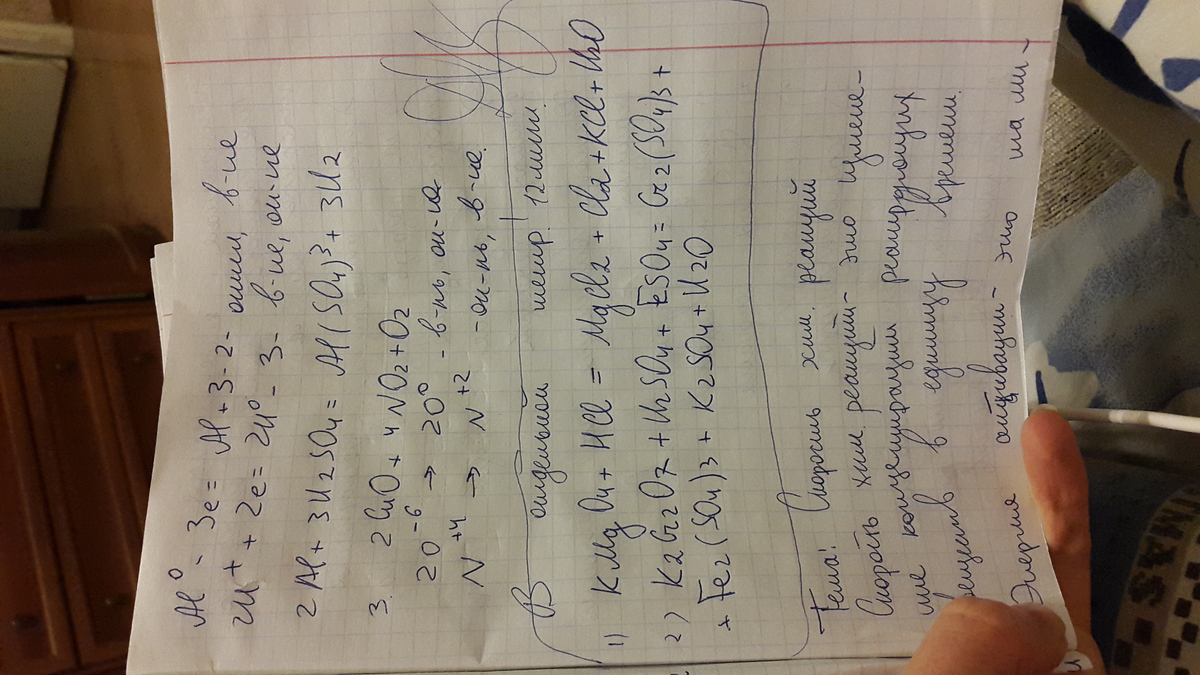 Al⁰ - 3e = Al+3 - 2 - окисл, в-ие
2H+ + 2e = 2H⁰ - 3 - в-ие, ок-ие
2Al + 3H2SO4 = Al(SO4)3 + 3H2
3. 2CuO + 4NO2 + O2
2O⁻⁶ → 2O⁰ - в-ль, ок-ие
N⁺⁴ → N⁺² - ок-ль, в-ие.
В отдельной тетр! 12 мин.
1) KMgO4 + HCl = MgCl2 + Cl2 + KCl + H2O
2) K2Cr2O7 + H2SO4 + FSO4 = Cr2(SO4)3 +
+ Fe2(SO4)3 + K2SO4 + H2O
Тема: Скорость хим. реакций
Скорость хим. реакций - это измене-
ние концентрации реагирующих
веществ в единицу времени.
Энергия активации - это та ми-
MAS